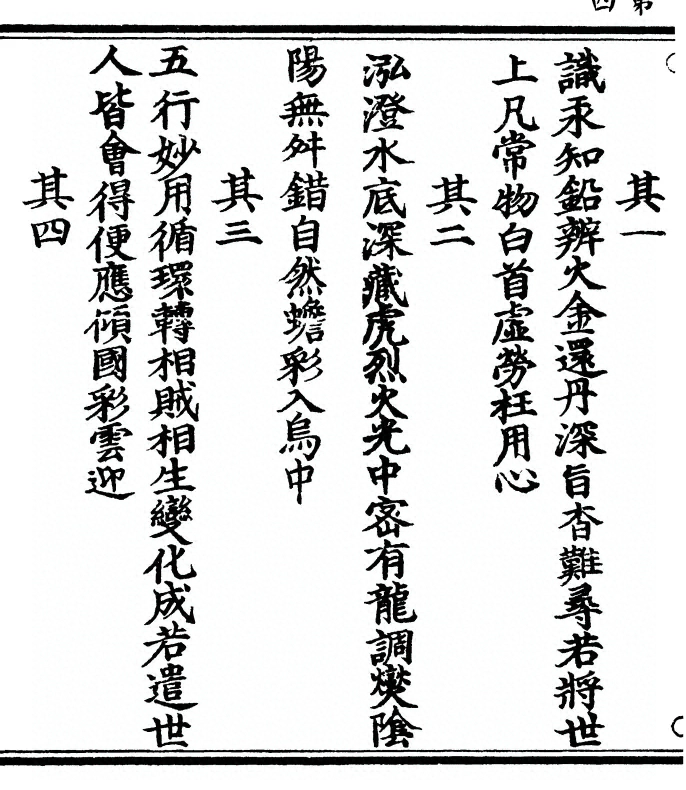 其一
識汞知鉛辨火金還丹深旨杳難尋若將世
上凡常物白首虛勞枉用心
其二
泓澄水底深藏虎烈火光中宻有龍調燮隂
陽無舛錯自然蟾彩入烏中
其三
五行妙用循環轉相賊相生變化成若遣世
人皆會得便應傾國彩雲迎
其四